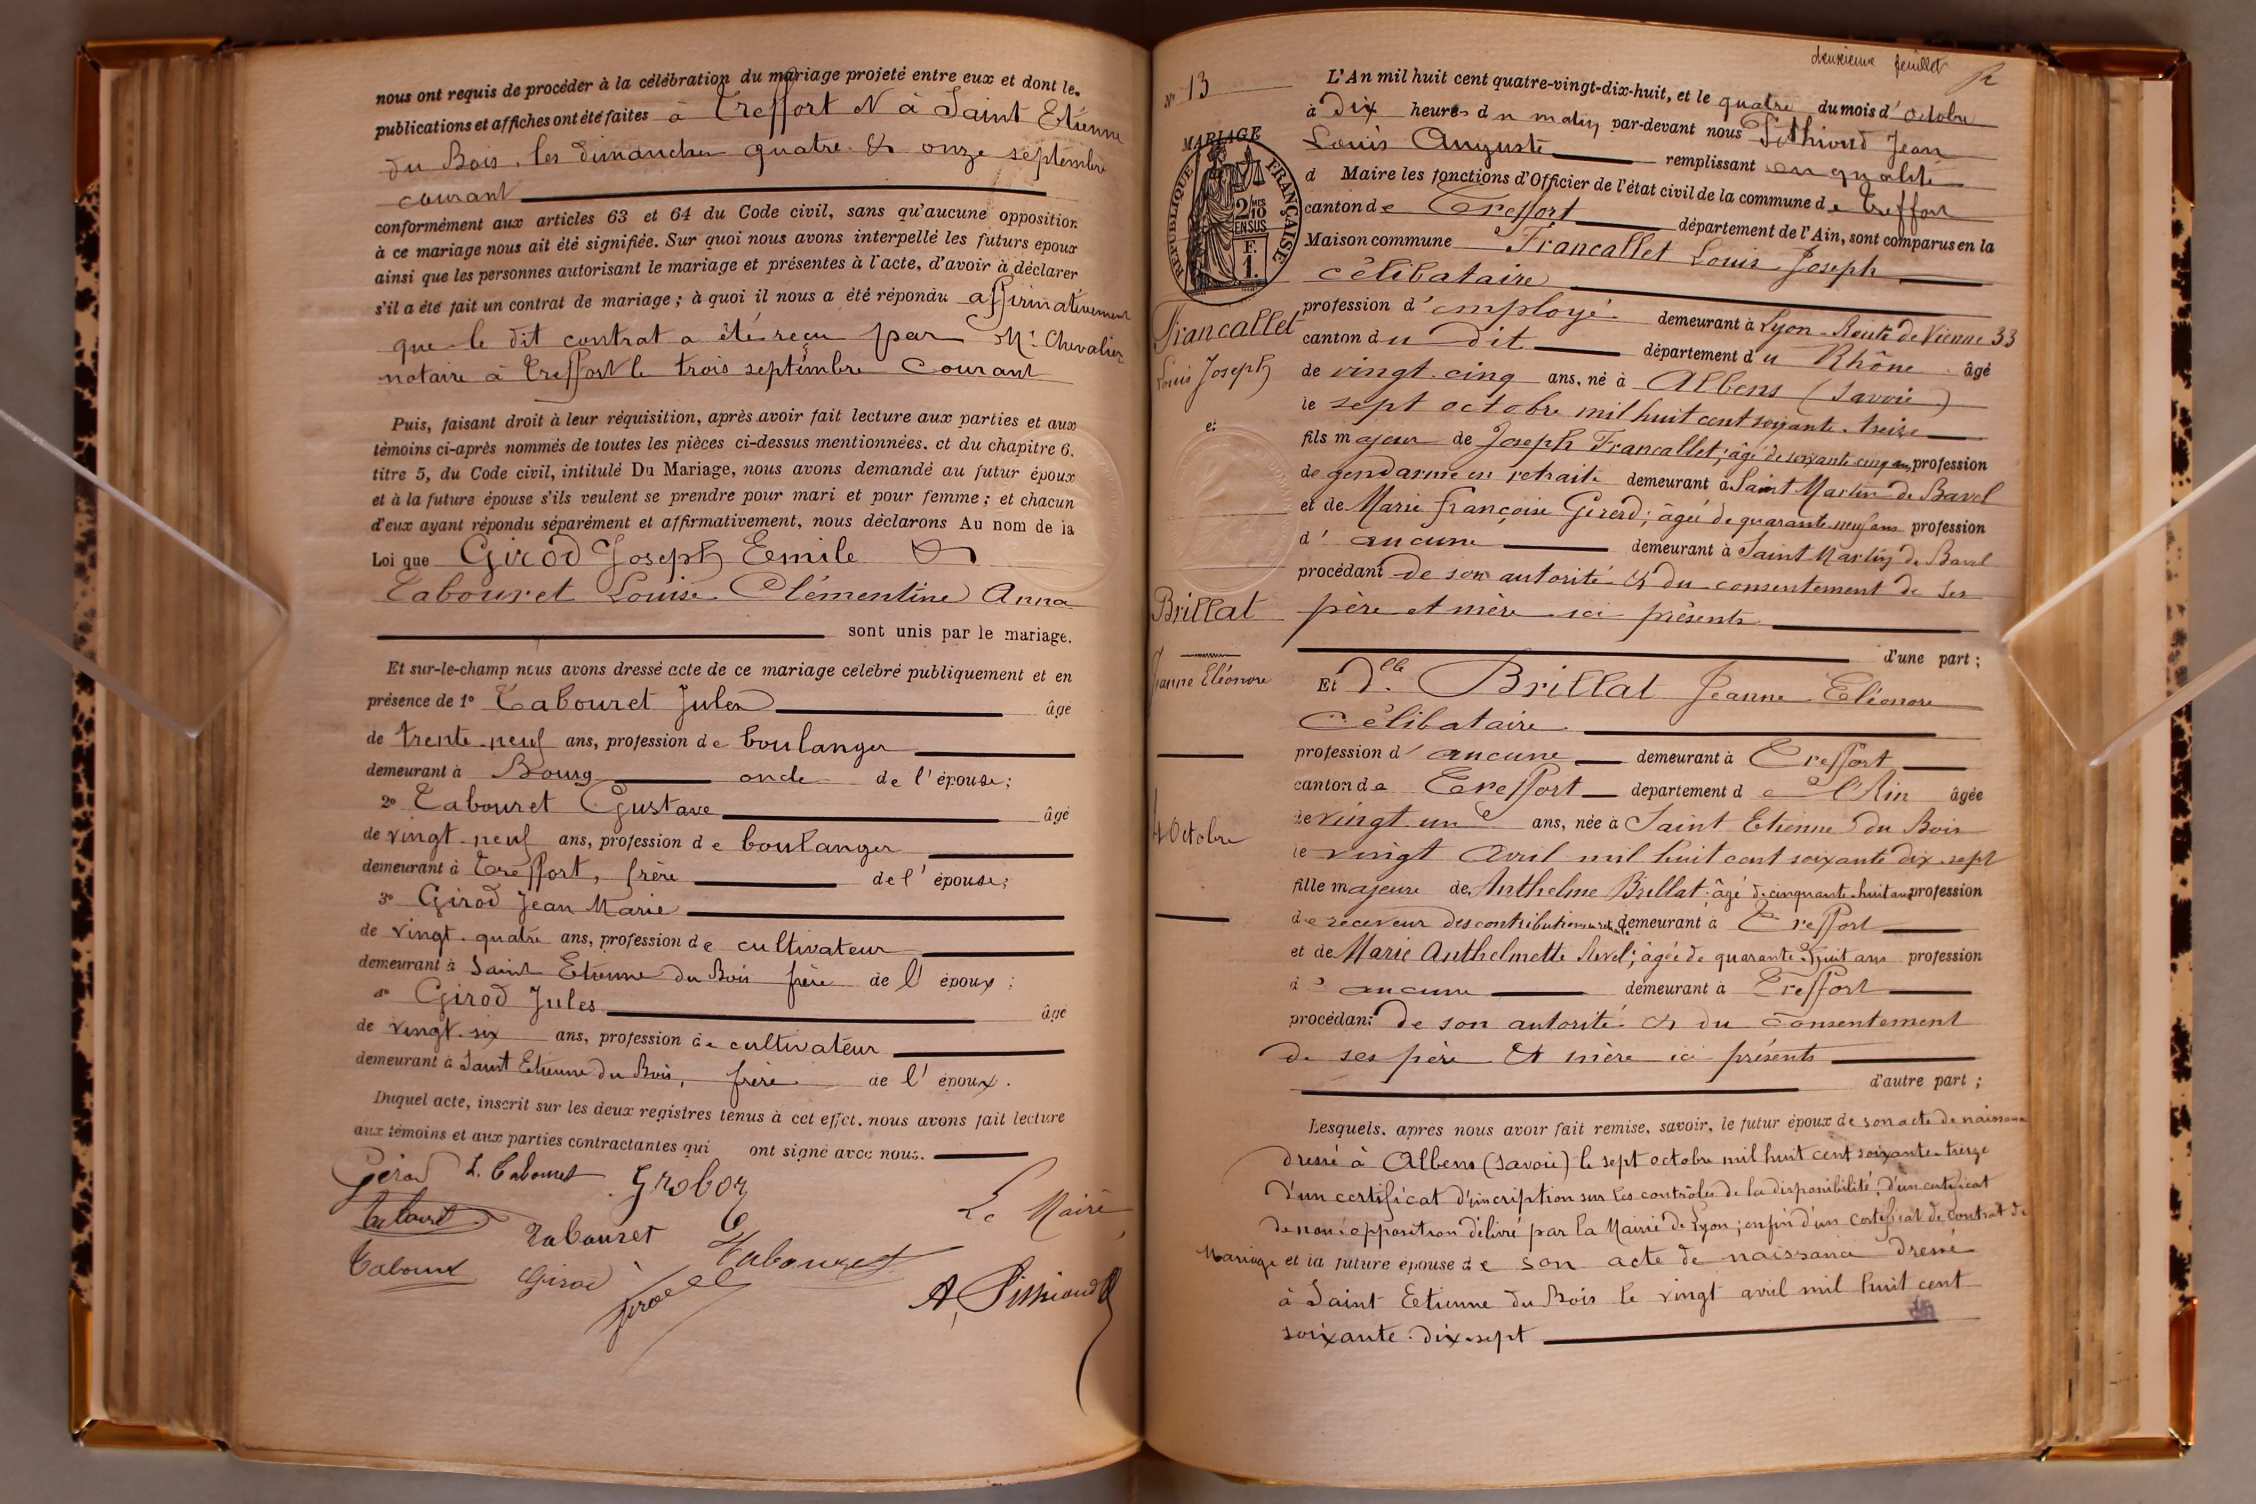 nous ont requis de procéder à la célébration du mariage projeté entre eux et dont les
publications et affiches ont été faites à Treffort & à Saint Etienne
du Bois, les dimanches quatre & onze septembre
courant
conformément aux articles 63 et 64 du Code civil, sans qu'aucune opposition
à ce mariage nous ait été signifiée. Sur quoi nous avons interpellé les futurs époux
ainsi que les personnes autorisant le mariage et présentes à l'acte, d'avoir à déclarer
s'il a été fait un contrat de mariage ; à quoi il nous a été répondu affirmativement
que le dit contrat a été reçu par Me Chevalier
notaire à Treffort le trois septembre courant
Puis, faisant droit à leur réquisition, après avoir fait lecture aux parties et aux
témoins ci-après nommés de toutes les pièces ci-dessus mentionnées, et du chapitre 6,
titre 5, du Code civil, intitulé Du Mariage, nous avons demandé au futur époux
et à la future épouse s'ils veulent se prendre pour mari et pour femme ; et chacun
d'eux ayant répondu séparément et affirmativement, nous déclarons Au nom de la
Loi que Girod Joseph Emile &
Tabouret Louise Clémentine Anna
sont unis par le mariage.
Et sur-le-champ nous avons dressé acte de ce mariage célébré publiquement et en
présence de 1° Tabouret Jules âgé
de trente-neuf ans, profession de boulanger
demeurant à Bourg oncle de l'épouse ;
2° Tabouret Gustave âgé
de vingt-neuf ans, profession de boulanger
demeurant à Treffort, frère de l'épouse ;
3° Girod Jean Marie
de vingt-quatre ans, profession de cultivateur
demeurant à Saint Etienne du Bois frère de l'époux ;
4° Girod Jules âgé
de vingt-six ans, profession de cultivateur
demeurant à Saint Etienne du Bois, frère de l'époux.
Duquel acte, inscrit sur les deux registres tenus à cet effet, nous avons fait lecture
aux témoins et aux parties contractantes qui ont signé avec nous.
Girod L. Tabouret Grobon
Le Maire
Tabouret G Tabouret
Girod
deuxième feuillet
N° 13
MARIAGE
RÉPUBLIQUE FRANÇAISE
2/10 MES
EN SUS
F.
1.
L'An mil huit cent quatre-vingt-dix-huit, et le quatre du mois d'octobre
à dix heures du matin par-devant nous Pithioud Jean
Louis Auguste remplissant en qualité
d Maire les fonctions d'Officier de l'état civil de la commune de Treffort
canton de Treffort département de l'Ain, sont comparus en la
Maison commune Francallet Louis Joseph
célibataire
profession d'employé demeurant à Lyon Route de Vienne 33
canton du dit département du Rhône âgé
de vingt-cinq ans, né à Albens (Savoie)
le sept octobre mil huit cent soixante-treize
fils majeur de Joseph Francallet ; âgé de soixante cinq ans, profession
de gendarme en retraite demeurant à Saint Martin de Bavel
et de Marie Françoise Gererd ; âgée de quarante-neuf ans profession
d'aucune demeurant à Saint Martin de Bavel
procédant de son autorité & du consentement de ses
père et mère ici présents
d'une part ;
Francallet
Louis Joseph
et
Brillat
Jeanne Eléonore
4 Octobre
Et Dlle Brillat Jeanne Eléonore
Célibataire
profession d'aucune demeurant à Treffort
canton de Treffort département de l'Ain âgée
de vingt-un ans, née à Saint Etienne du Bois
le vingt avril mil huit cent soixante-dix-sept
fille majeure de Anthelme Brillat, âgé de cinquante-huit ans profession
de receveur des contributions demeurant à Treffort
et de Marie Anthelmette Revel ; âgée de quarante-huit ans profession
d'aucune demeurant à Treffort
procédant de son autorité & du consentement
de ses père et mère ici présents
d'autre part ;
Lesquels, après nous avoir fait remise, savoir, le futur époux de son acte de naissance
dressé à Albens (Savoie) le sept octobre mil huit cent soixante-treize
d'un certificat d'inscription sur les contrôles de la disponibilité, d'un certificat
de non opposition délivré par la Mairie de Lyon ; enfin d'un certificat de contrat de
mariage et la future épouse de son acte de naissance dressé
à Saint Etienne du Bois le vingt avril mil huit cent
soixante-dix-sept